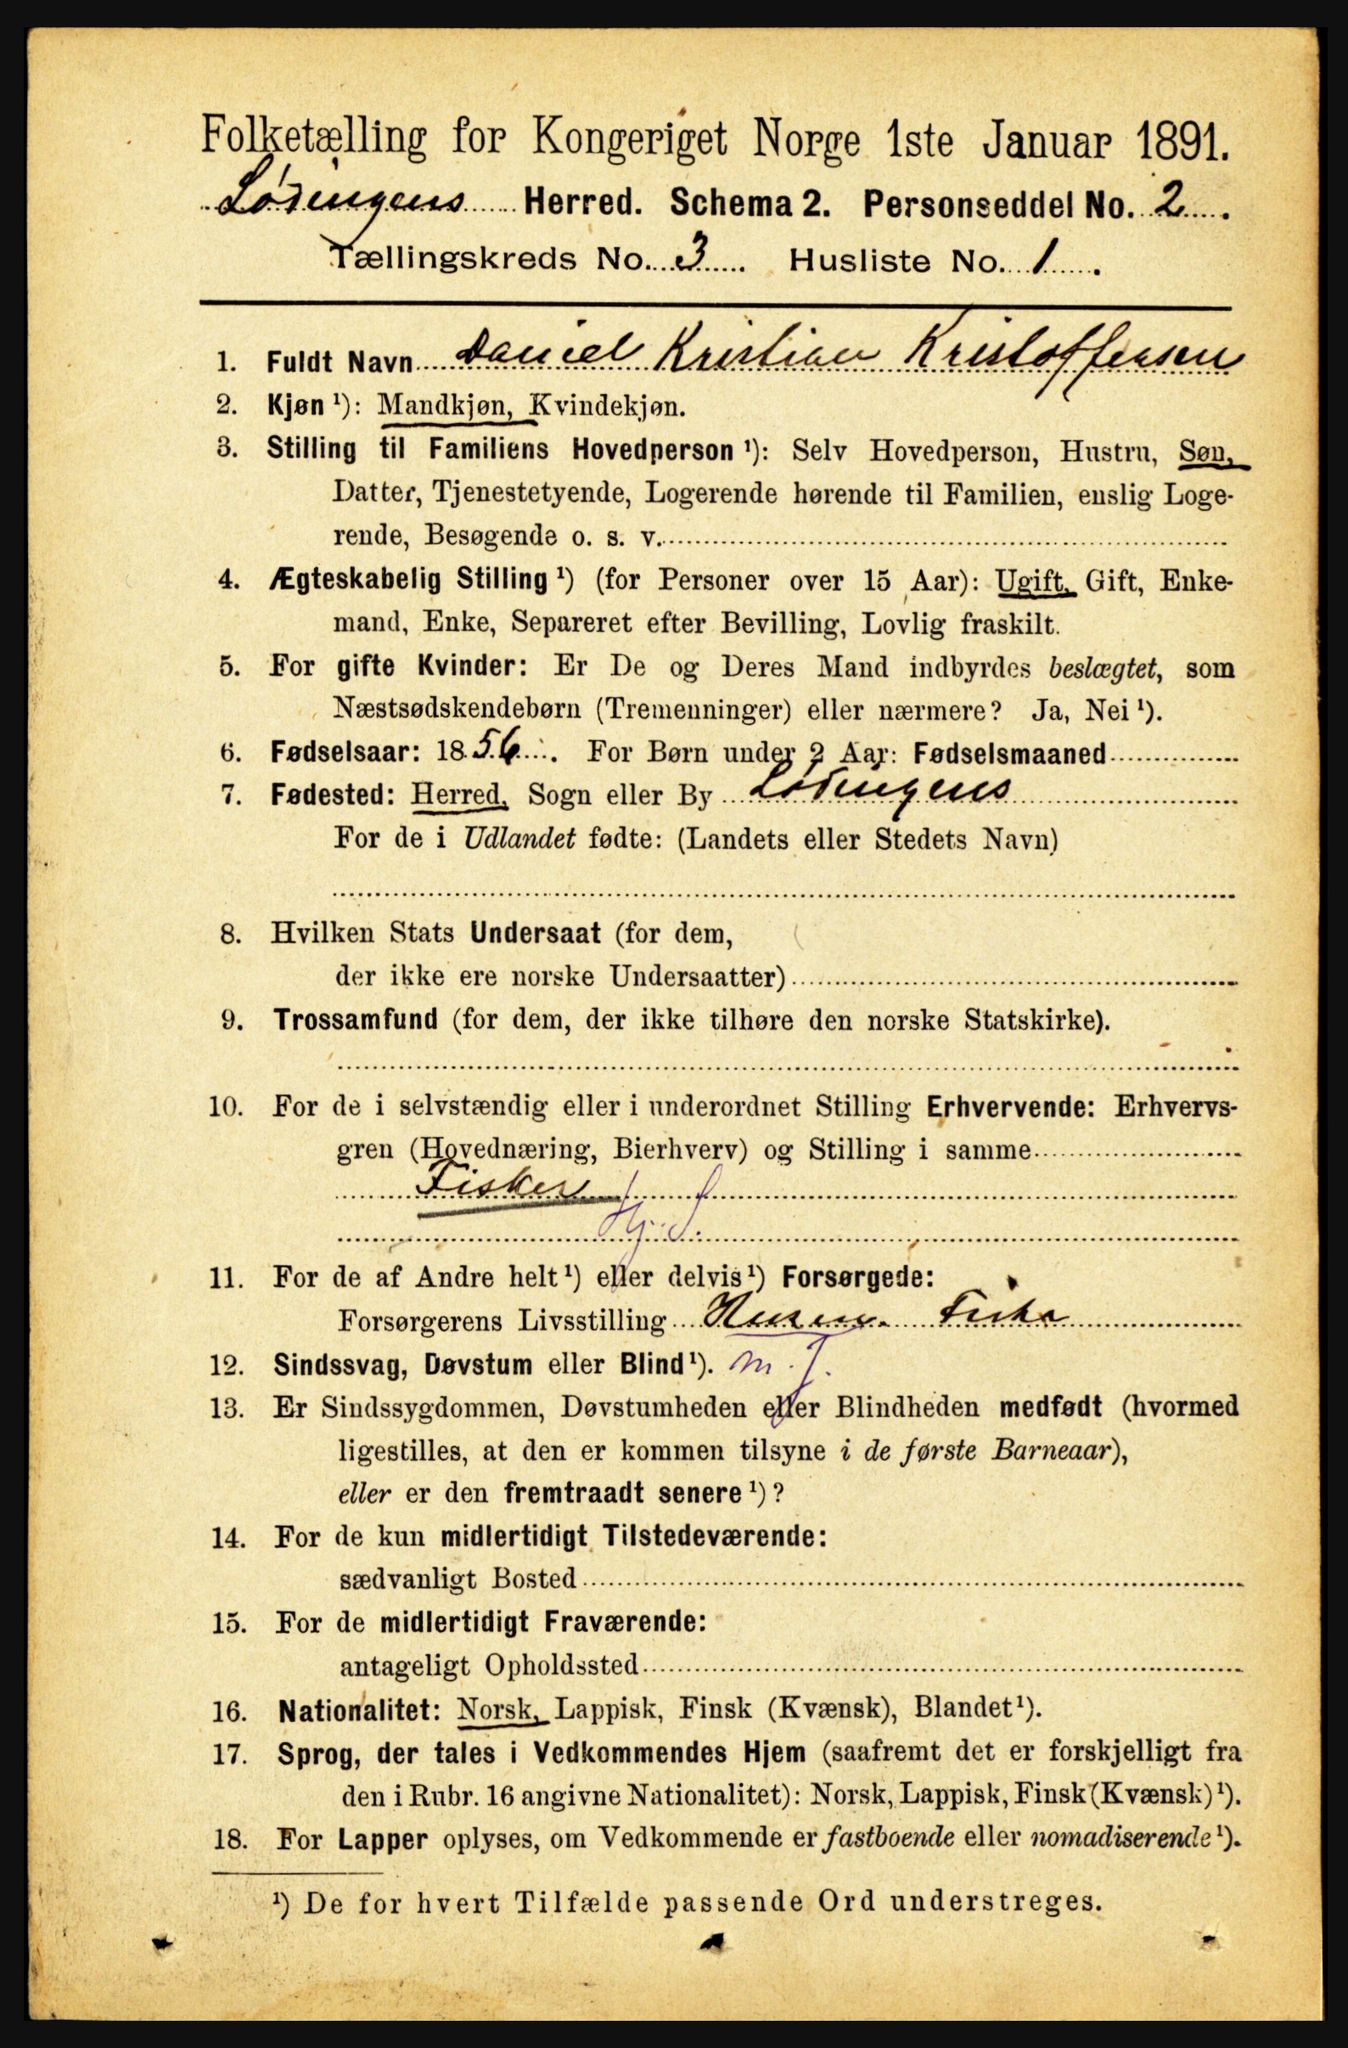 Folketælling for Kongeriget Norge 1ste Januar 1891.
Lødingens Herred. Schema 2. Personseddel No. 2
Tællingskreds No. 3 Husliste No. 1
1. Fuldt Navn Daniel Kristian Kristoffersen
2. Kjøn ¹): Mandkjøn, Kvindekjøn.
3. Stilling til Familiens Hovedperson ¹): Selv Hovedperson, Hustru, Søn,
Datter, Tjenestetyende, Logerende hørende til Familien, enslig Loge-
rende, Besøgende o. s. v.
4. Ægteskabelig Stilling ¹) (for Personer over 15 Aar): Ugift, Gift, Enke-
mand, Enke, Separeret efter Bevilling, Lovlig fraskilt.
5. For gifte Kvinder: Er De og Deres Mand indbyrdes beslægtet, som
Næstsødskendebørn (Tremenninger) eller nærmere? Ja, Nei ¹).
6. Fødselsaar: 1856. For Børn under 2 Aar: Fødselsmaaned
7. Fødested: Herred, Sogn eller By Lødingens
For de i Udlandet fødte: (Landets eller Stedets Navn)
8. Hvilken Stats Undersaat (for dem,
der ikke ere norske Undersaatter)
9. Trossamfund (for dem, der ikke tilhøre den norske Statskirke).
10. For de i selvstændig eller i underordnet Stilling Erhvervende: Erhvervs-
gren (Hovednæring, Bierhverv) og Stilling i samme
Fisker
Hj. S.
11. For de af Andre helt ¹) eller delvis ¹) Forsørgede:
Forsørgerens Livsstilling Fiske
12. Sindssvag, Døvstum eller Blind ¹). m. J.
13. Er Sindssygdommen, Døvstumheden eller Blindheden medfødt (hvormed
ligestilles, at den er kommen tilsyne i de første Barneaar),
eller er den fremtraadt senere ¹)?
14. For de kun midlertidigt Tilstedeværende:
sædvanligt Bosted
15. For de midlertidigt Fraværende:
antageligt Opholdssted
16. Nationalitet: Norsk, Lappisk, Finsk (Kvænsk), Blandet ¹).
17. Sprog, der tales i Vedkommendes Hjem (saafremt det er forskjelligt fra
den i Rubr. 16 angivne Nationalitet): Norsk, Lappisk, Finsk (Kvænsk) ¹).
18. For Lapper oplyses, om Vedkommende er fastboende eller nomadiserende ¹).
¹) De for hvert Tilfælde passende Ord understreges.